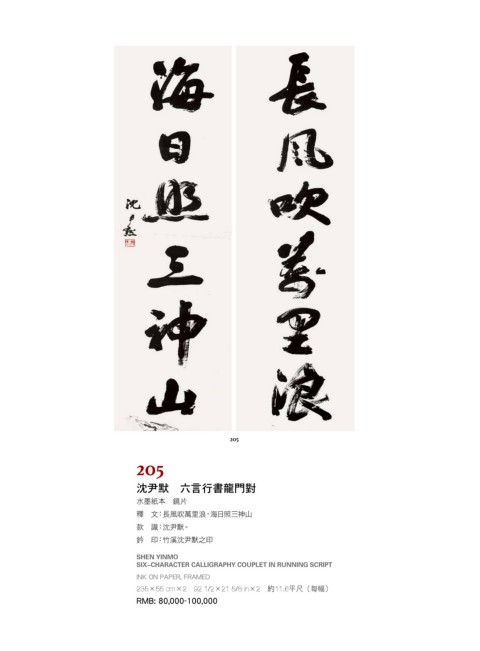 長風吹萬里浪
海日照三神山
沈尹默
205
205
沈尹默　六言行書龍門對
水墨紙本　鏡片
釋　文：長風吹萬里浪，海日照三神山
款　識：沈尹默。
鈐　印：竹溪沈尹默之印
SHEN YINMO
SIX-CHARACTER CALLIGRAPHY COUPLET IN RUNNING SCRIPT
INK ON PAPER, FRAMED
235×55 cm×2　92 1/2×21 5/8 in×2　約11.6平尺（每幅）
RMB: 80,000-100,000